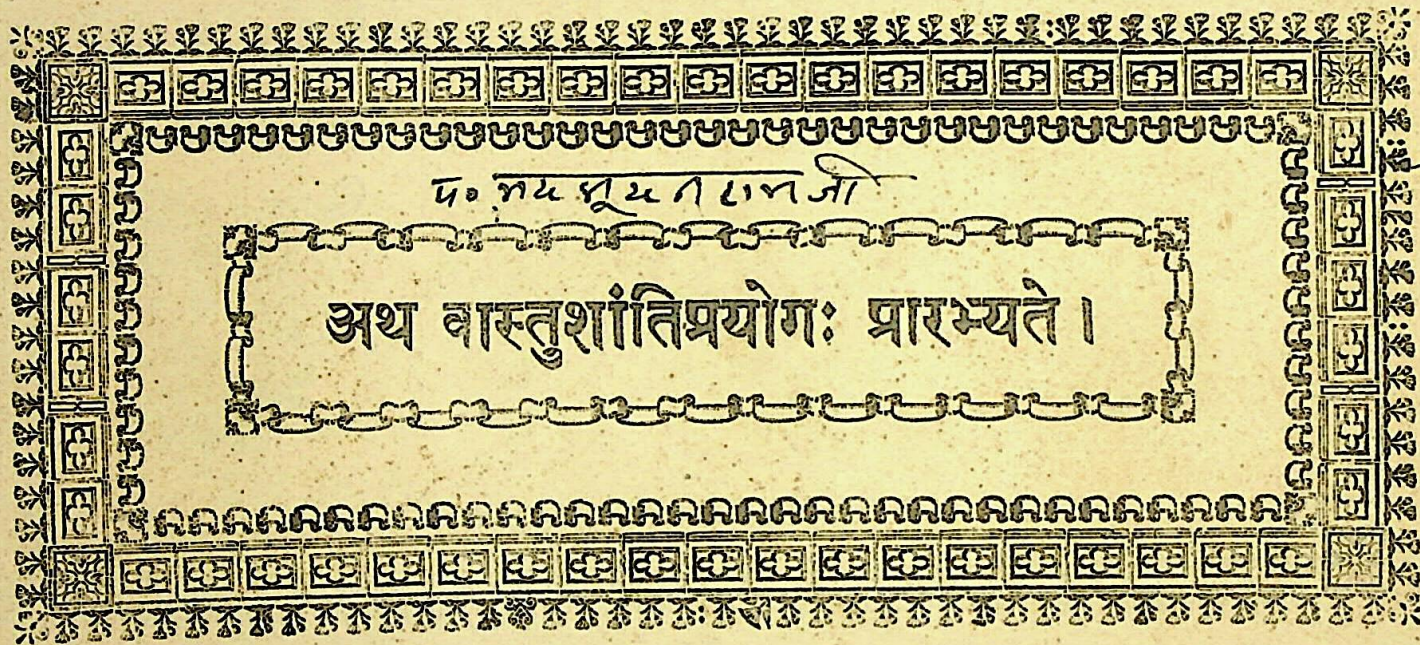 पं० जी
अथ वास्तुशांतिप्रयोगः प्रारभ्यते।